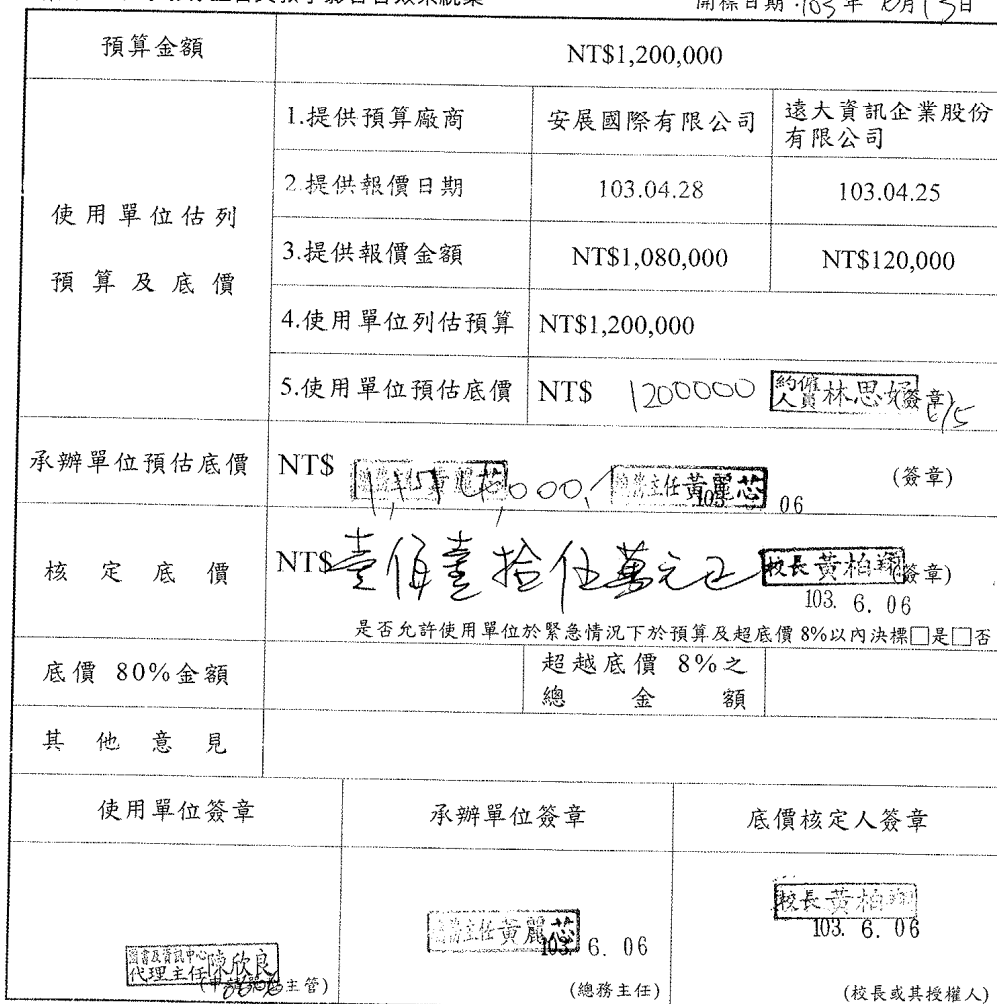 開標日期:103年 6月13日
預算金額 NT$1,200,000
使用單位估列
預算及底價
1.提供預算廠商 安展國際有限公司 遠大資訊企業股份
有限公司
2.提供報價日期 103.04.28 103.04.25
3.提供報價金額 NT$1,080,000 NT$120,000
4.使用單位列估預算 NT$1,200,000
5.使用單位預估底價 NT$ 1200000 約僱人員林思 (簽章) 6/5
承辦單位預估底價 NT$ 主任黃麗芯 103. 06 (簽章)
核定底價 NT$壹佰壹拾伍萬元正 校長黃柏翔 (簽章)
103. 6. 06
是否允許使用單位於緊急情況下於預算及超底價8%以內決標□是□否
底價 80%金額 超越底價 8%之
總金額
其他意見
使用單位簽章 承辦單位簽章 底價核定人簽章
校長黃柏翔
103. 6. 06
總務主任黃麗芯
103. 6. 06
圖書及資訊中心
代理主任陳欣良
主管) (總務主任) (校長或其授權人)